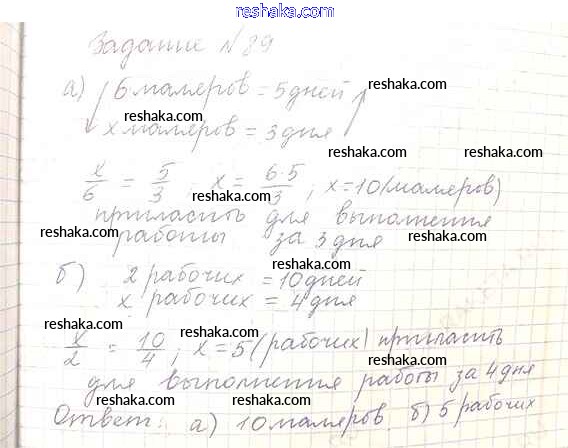 reshaka.com
Задание №89
а) 6 маляров = 5 дней
reshaka.com
reshaka.com
х маляров = 3 дня
reshaka.com
reshaka.com
х/6 = 5/3 ; х = 6·5/3 ; х = 10 (маляров)
reshaka.com
пригласить для выполнения
работы за 3 дня
reshaka.com
reshaka.com
б) 2 рабочих = 10 дней
reshaka.com
х рабочих = 4 дня
reshaka.com
reshaka.com
reshaka.com
х/2 = 10/4 ; х = 5 (рабочих) пригласить
reshaka.com
reshaka.com
для выполнения работы за 4 дня
reshaka.com
Ответ: а) 10 маляров б) 5 рабочих
reshaka.com
reshaka.com